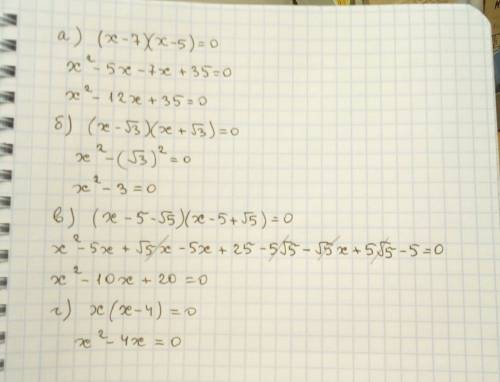 а) (x-7)(x-5)=0
x²-5x-7x+35=0
x²-12x+35=0
б) (x-√3)(x+√3)=0
x²-(√3)²=0
x²-3=0
в) (x-5-√5)(x-5+√5)=0
x²-5x+√5x-5x+25-5√5-√5x+5√5-5=0
x²-10x+20=0
г) x(x-4)=0
x²-4x=0